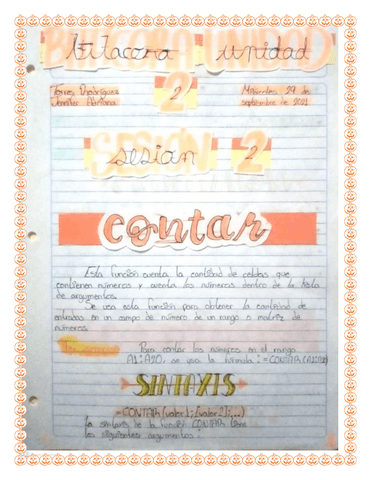 bitacora unidad
2
Torres Rodriguez
Jennifer Adriana
Miercoles 29 de
septiembre de 2021
SESIÓN 2
sesion 2
contar
Esta función cuenta la cantidad de celdas que
contienen números y cuenta los números dentro de la lista
de argumentos.
Se usa esta función para obtener la cantidad de
entradas en un campo de número de un rango o matriz de
números.
Por ejemplo: Para contar los números en el rango
A1:A20, se usa la fórmula: =CONTAR(A1:A20)
SINTAXIS
=CONTAR(valor1; [valor2];...)
La sintaxis de la función CONTAR tiene
los siguientes argumentos: